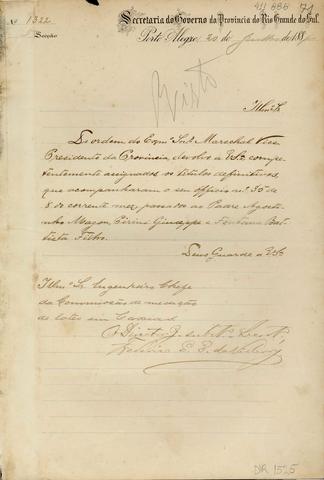 411 888 71
Nº 1322
Secretaria do Governo da Provincia do Rio Grande do Sul.
Secção
Porto Alegre, 20 de Junho de 188
Visto
Illmo Sr.
D'ordem do Exmo Snr. Marechal Vice
Presidente da Provincia devolvo a V.Sa. compe-
tentemente assignados os titulos definitivos,
que acompanharam o seu officio nº 50 de
8 do corrente mez, passado ao Padre Agosti-
nho Magon, Cirino Giuseppe e Fontana Bat-
tista Filho.
Deus Guarde a V.Sa.
Illmo Sr. Engenheiro Chefe
da Commissão de medição
de lotes em Caxias
O Direct
DIR 1525